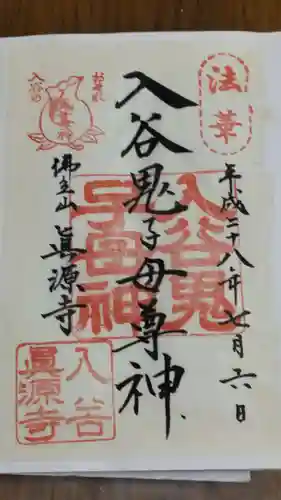 法華
平成二十八年七月六日
入谷鬼子母尊神
入谷鬼
子母神
佛立山 眞源寺
入谷
眞源寺
入谷の